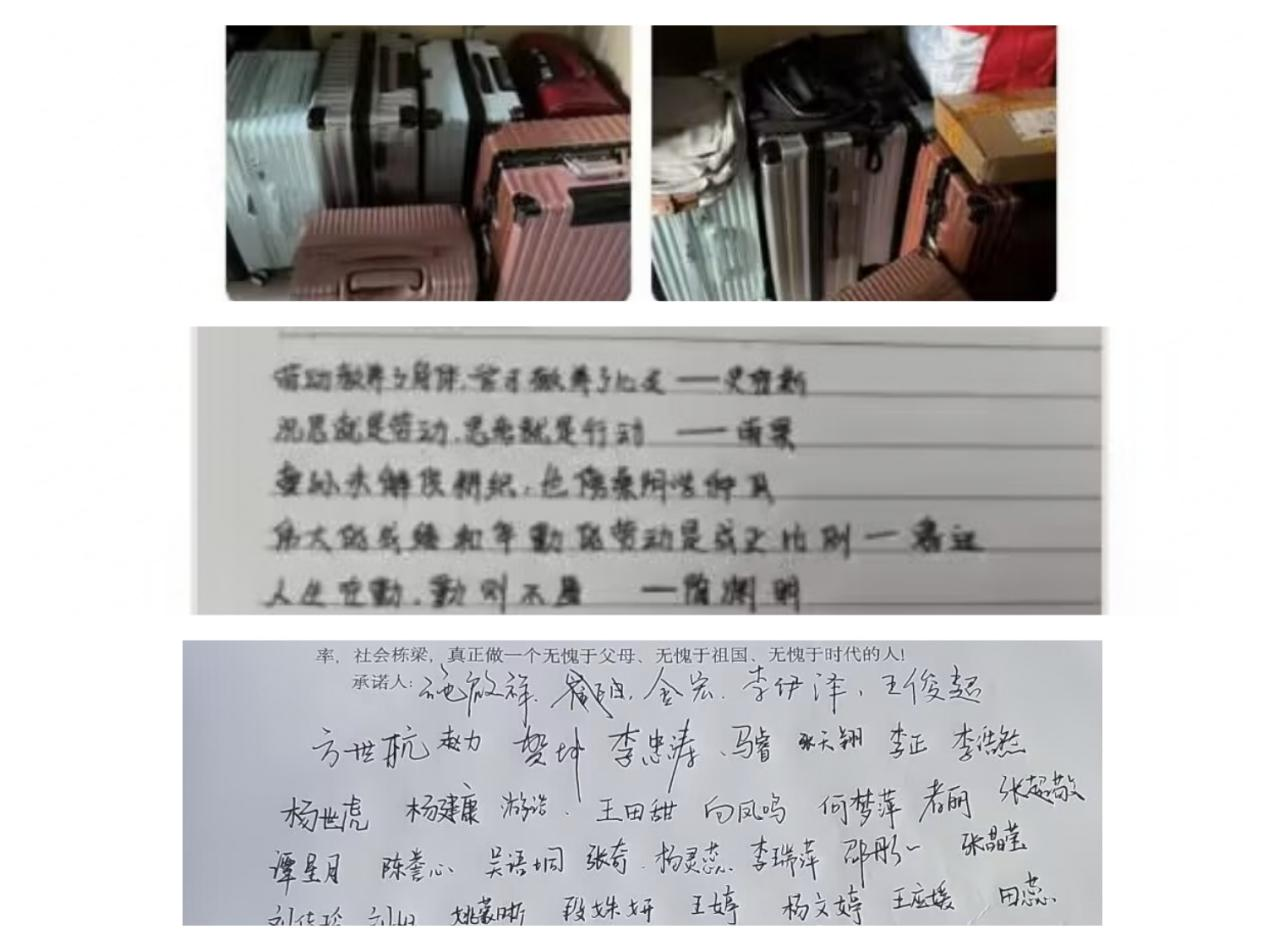 劳动教养了身体,学习教养了心灵 ——史密斯
沉思就是劳动,思考就是行动 ——雨果
童孙未解供耕织,也傍桑阴学种瓜
伟大的成绩和辛勤的劳动是成正比例 — 鲁迅
人生在勤,勤则不匮 ——陶渊明
率,社会栋梁,真正做一个无愧于父母、无愧于祖国、无愧于时代的人!
承诺人: 施啟祥. 金宏. 李伊泽、王俊超
方世杭 赵力 贺坤 李忠涛、马睿 张天翔 李正 李浩然
杨世虎 杨建康 游浩. 王田甜 向凤鸣 何梦萍 者丽 张超敬
谭星月 陈誉心 吴语垌 张奇 杨灵蕊 李瑞萍 邵彤 张晶莹
姚蒙晰 段姝妍 王婷 杨文婷 王应媛 田蕊